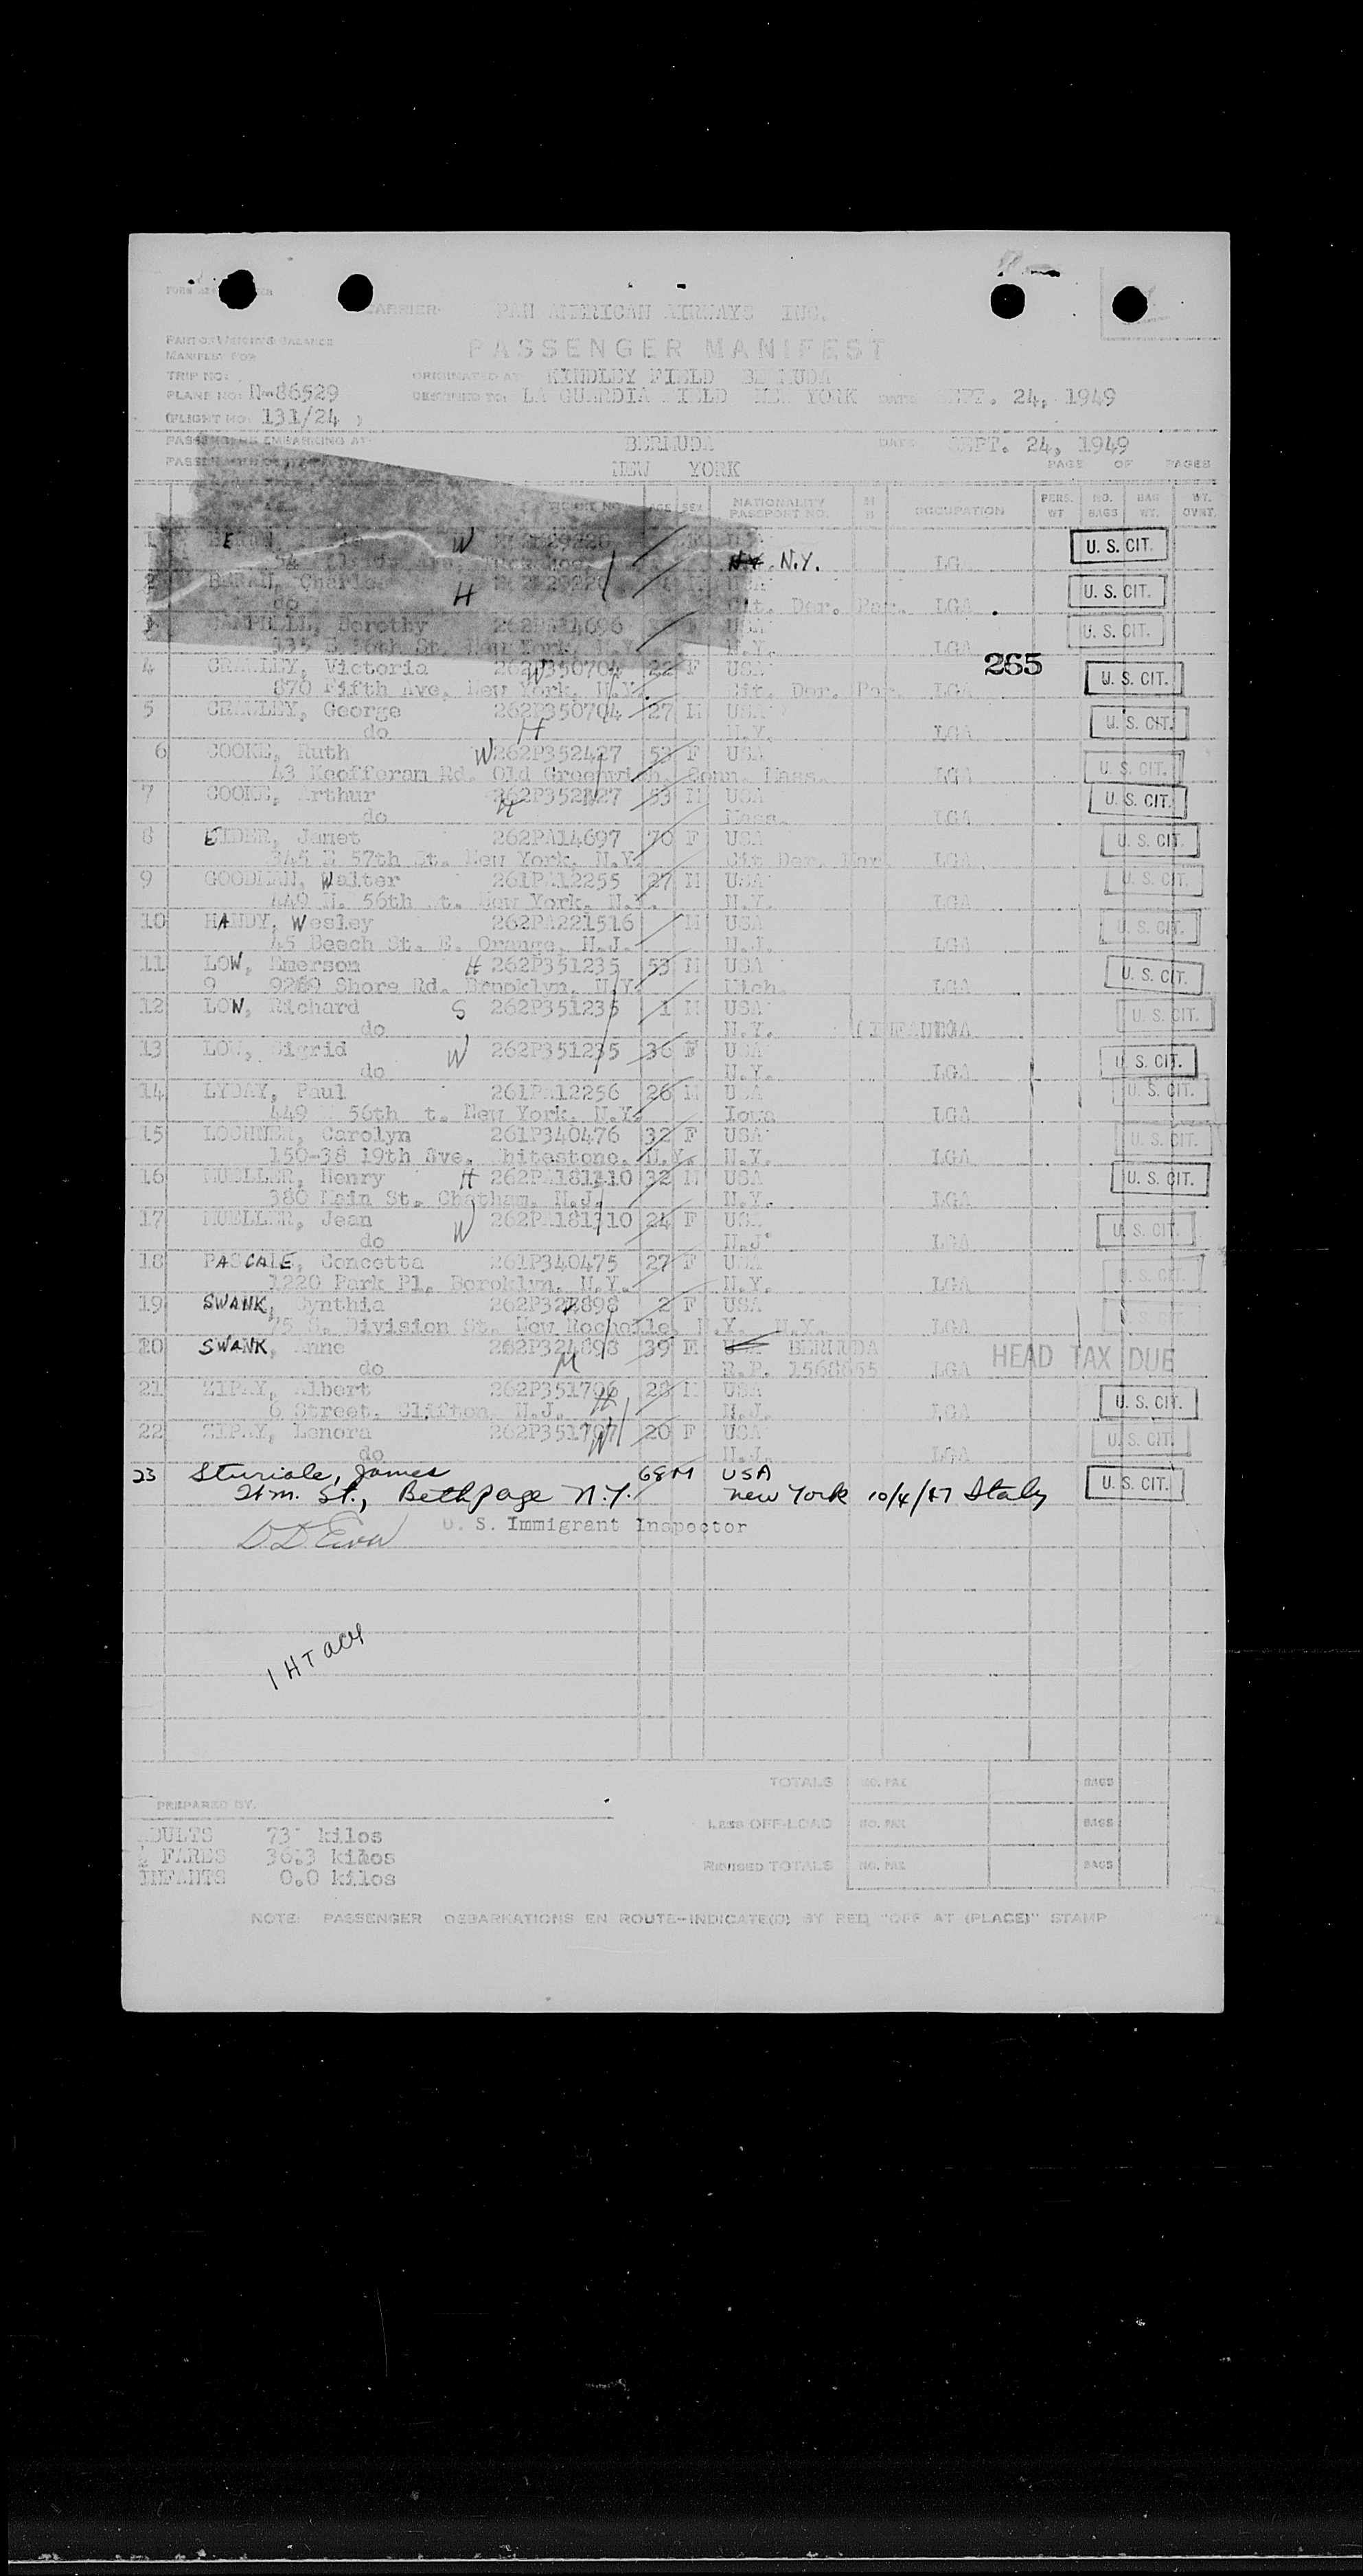 CARRIER- PAN AMERICAN AIRWAYS INC.
PASSENGER MANIFEST
MANIFEST FOR
TRIP NO:
ORIGINATED AT KINDLEY FIELD BERMUDA
PLANE NO: N-86529 DESTINED TO: LA GUARDIA FIELD NEW YORK DATE SEPT. 24, 1949
(FLIGHT NO: 131/24 )
PASSENGERS EMBARKING AT BERMUDA DATE SEPT. 24, 1949
NEW YORK PAGE OF PAGES
AGE SEX NATIONALITY PASSPORT NO. OCCUPATION PERS. WT NO. BAGS BAG WT. WT. OVNT.
1 W U. S. CIT.
N.Y. LG
2 Charles H U. S. CIT.
do Cit. Der. Par. LGA
3 Dorothy 262PA14696 USA U. S. CIT.
135 E. 56th St. New York, N.Y. N.Y. LGA 265
4 Victoria 262P350704 22 F USA U. S. CIT.
870 Fifth Ave, New York, N.Y. Cit. Der. Par. LGA
5 George 262P350704 27 M USA U. S. CIT.
do H N.Y. LGA
6 COOKE, Ruth W 262P352427 53 F USA U. S. CIT.
43 Rd. Old Greenwich, Conn. Mass. LGA
7 COOKE, Arthur 262P352427 53 M USA U. S. CIT.
do H Mass. LGA
8 EIDER, Janet 262PA14697 70 F USA U. S. CIT.
345 E 57th St. New York, N.Y. Cit Der. Par. LGA
9 GOODMAN, Walter 261PA12255 27 M USA U. S. CIT.
449 W. 56th St. New York, N.Y. N.Y. LGA
10 HANDY, Wesley 262PA221516 M USA U. S. CIT.
45 Beech St. E. Orange, N.J. N.J. LGA
11 LOW, Emerson H 262P351235 53 M USA U. S. CIT.
9 9269 Shore Rd. Brooklyn, N.Y. Mich. LGA
12 LOW, Richard S 262P351235 1 M USA U. S. CIT.
do N.Y.
13 LOW, Sigrid W 262P351235 36 F USA U. S. CIT.
do N.Y. LGA
14 LYDAY, Paul 261PA12256 26 M USA U. S. CIT.
449 56th t. New York, N.Y. Iowa LGA
15 LOCHNER, Carolyn 261P340476 32 F USA U. S. CIT.
150-38 19th Ave. Whitestone, N.Y. N.Y. LGA
16 MUELLER, Henry H 262PA181110 32 M USA U. S. CIT.
380 Main St. Chatham, N.J. N.Y. LGA
17 MUELLER, Jean W 262PA181110 24 F USA U. S. CIT.
do N.J. LGA
18 PASCALE, Concetta 261P340475 27 F USA U. S. CIT.
1220 Park Pl. Borooklyn, N.Y. N.Y. LGA
19 SWANK, Cynthia 262P324898 2 F USA U. S. CIT.
75 S. Division St. New Rochelle N.Y. N.Y. LGA
20 SWANK, Anne 262P324898 39 F USA BERMUDA HEAD TAX DUE
do M R.P. 1568655 LGA
21 ZIPAY, Albert 262P351706 28 M USA U. S. CIT.
6 Street, Clifton, N.J. H N.J. LGA
22 ZIPAY, Lenora 262P351707 20 F USA U. S. CIT.
do W N.J. LGA
23 Sturiale, James 68 M USA U. S. CIT.
St., Bethpage N.Y. New York 10/4/47 Italy
U. S. Immigrant Inspector
1 HT
TOTALS NO. PAX BAGS
PREPARED BY.
LESS OFF-LOAD NO. PAX BAGS
ADULTS 73 kilos
½ FARES 36.3 kilos
REVISED TOTALS NO. PAX BAGS
INFANTS 0.0 kilos
NOTE: PASSENGER DEBARKATIONS EN ROUTE-INDICATE(D) BY RED "OFF AT (PLACE)" STAMP